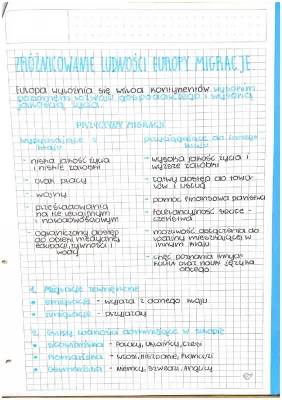 ZRÓŻNICOWANIE LUDNOŚCI EUROPY MIGRACJE
Europa wyróżnia się wśród kontynentów wysokim
poziomem rozwoju gospodarczego i wysoką
jakością życia.
PRZYCZYNY MIGRACJI
wypychające z
kraju
- niska jakość życia
i niskie zarobki
- brak pracy
- wojny
- prześladowania
na tle religijnym
i narodowościowym
- ograniczony dostęp
do opieki medycznej
edukacji, żywności i
wody
przyciągające do innego
kraju
- wysoka jakość życia i
wyższe zarobki
- łatwy dostęp do towa-
rów i usług
- pomoc finansowa państwa
- tolerancyjność społe-
czeństwa
- możliwość dołączenia do
rodziny mieszkającej w
innym kraju
- chęć poznania innych
kultur oraz nauki języka
obcego
1. Migracje zewnętrzne
• emigracja - wyjazd z danego kraju
• imigracja - przyjazdy
2. Grupy ludności dominujące w Europie
• słowiańska - Polacy, Ukraińcy, Czesi
• romańska - Włosi, Hiszpanie, Francuzi
• germańska - Niemcy, Szwedzi, Anglicy